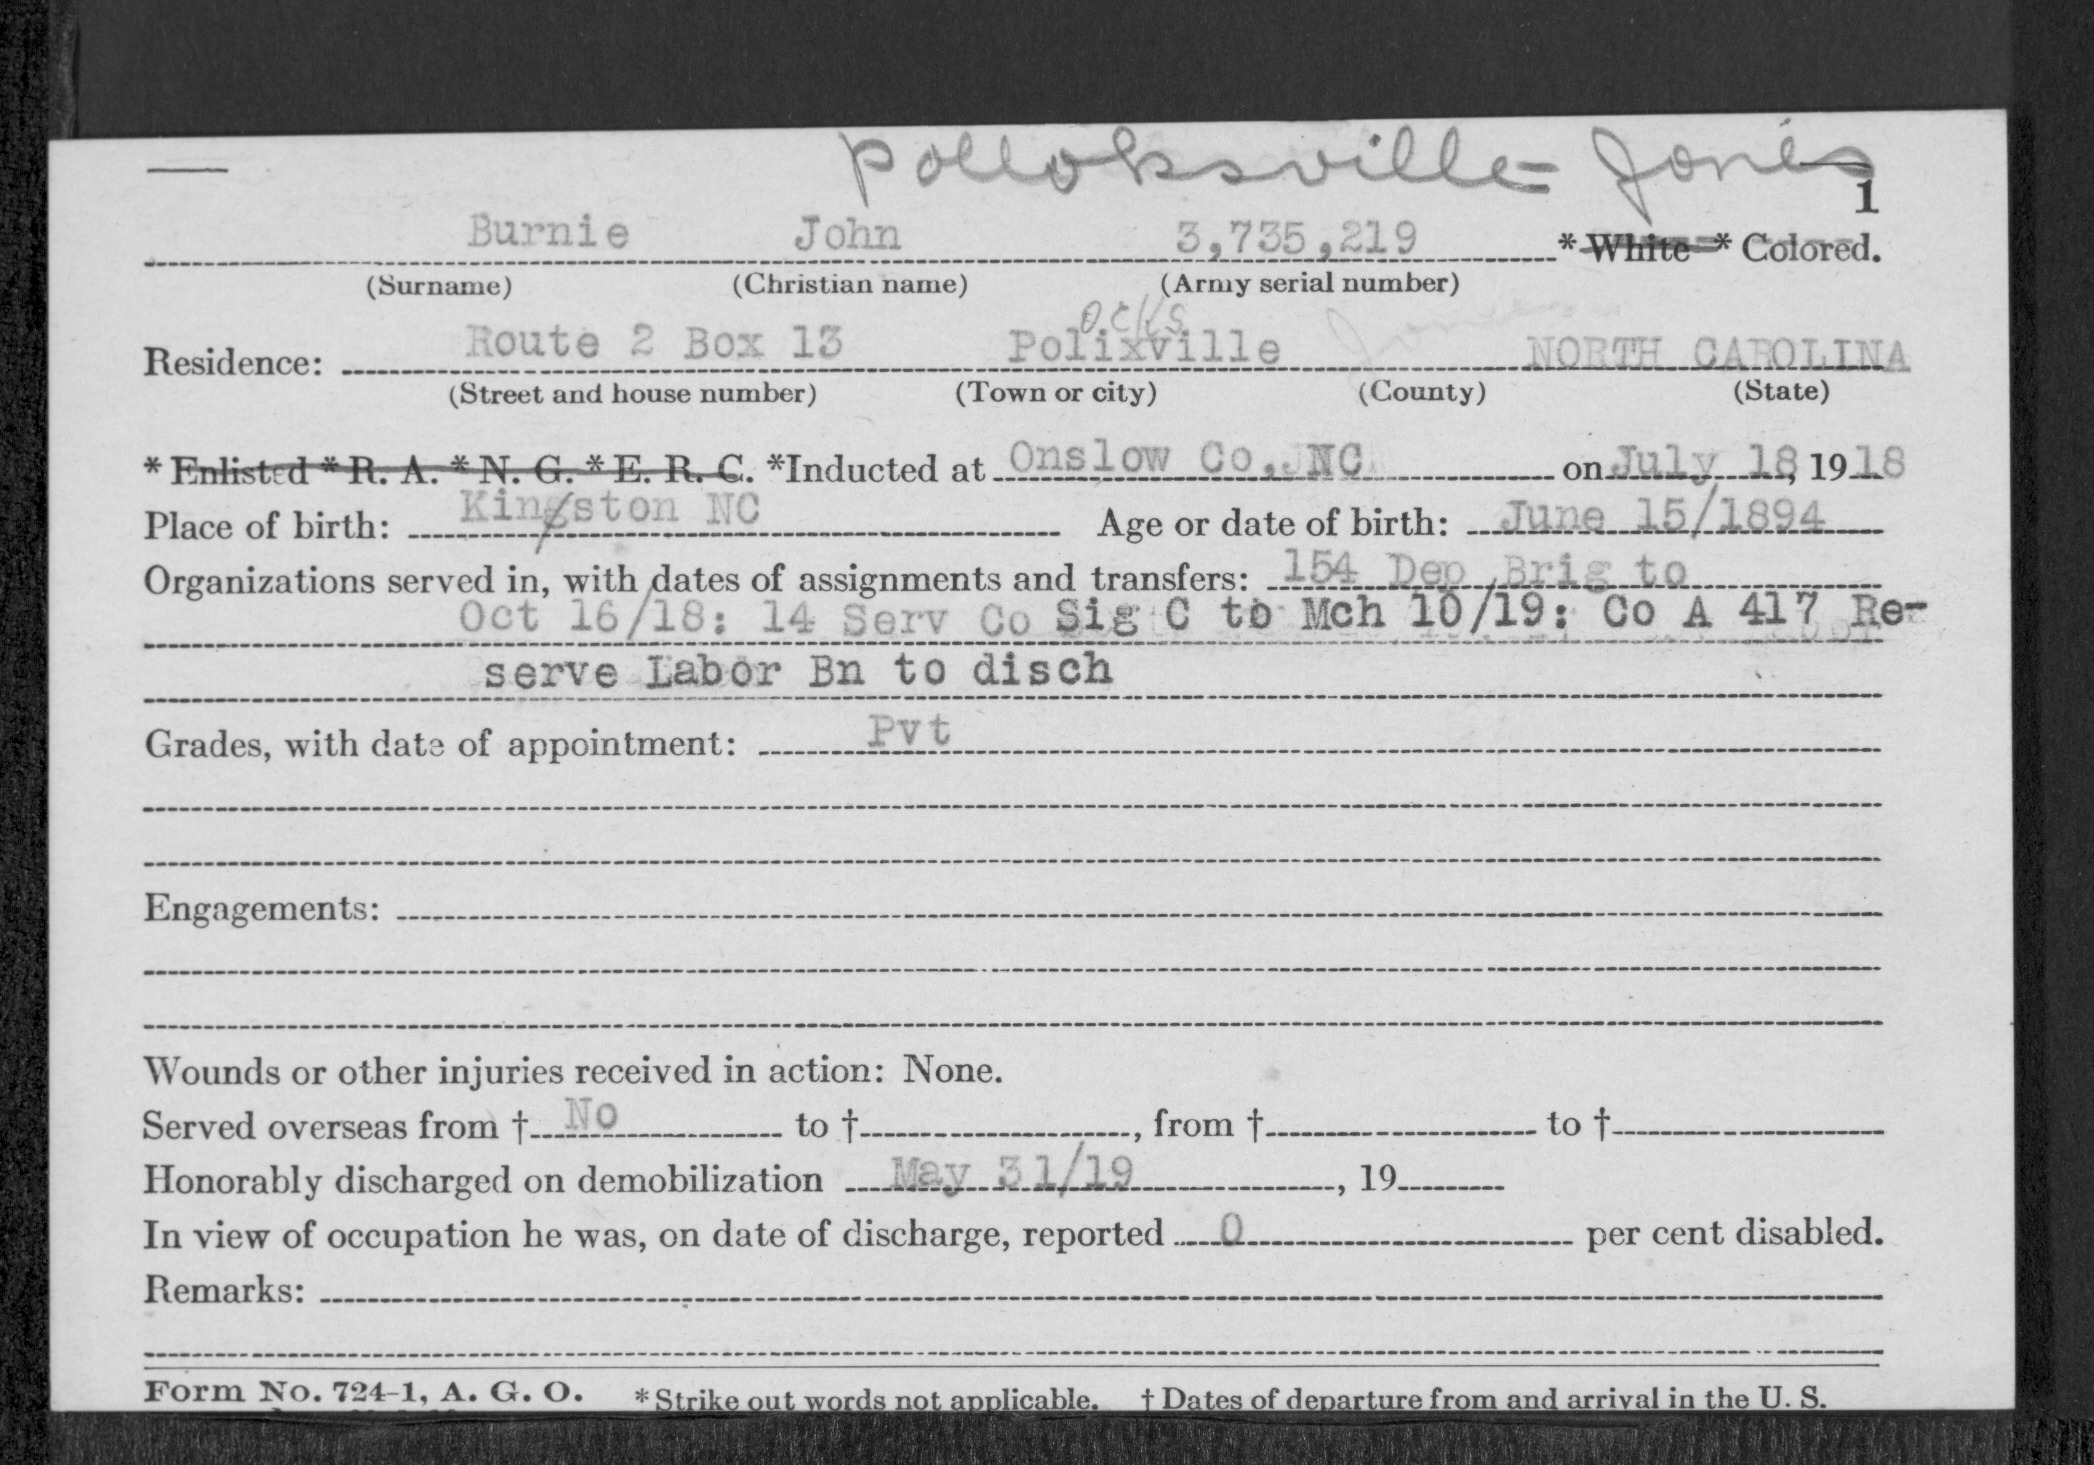 Polloksville - Jones
1
Burnie John 3,735,219 * White * Colored.
(Surname) (Christian name) (Army serial number)
ocks
Residence: Route 2 Box 13 Polixville Jones NORTH CAROLINA
(Street and house number) (Town or city) (County) (State)
* Enlisted * R. A. * N. G. * E. R. C. *Inducted at Onslow Co, NC on July 18, 1918
Place of birth: Kingston NC Age or date of birth: June 15/1894
Organizations served in, with dates of assignments and transfers: 154 Dep Brig to
Oct 16/18: 14 Serv Co Sig C to Mch 10/19: Co A 417 Re-
serve Labor Bn to disch
Grades, with date of appointment: Pvt
Engagements:
Wounds or other injuries received in action: None.
Served overseas from † No to †, from † to †
Honorably discharged on demobilization May 31/19, 19
In view of occupation he was, on date of discharge, reported 0 per cent disabled.
Remarks:
Form No. 724-1, A. G. O. * Strike out words not applicable. † Dates of departure from and arrival in the U. S.